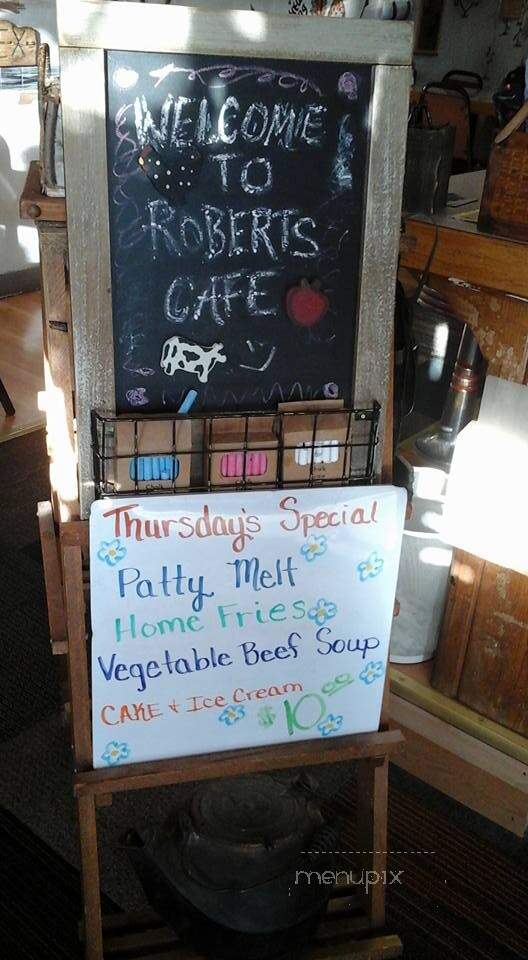 WELCOME
TO
ROBERTS
CAFE
Thursday's Special
Patty Melt
Home Fries
Vegetable Beef Soup
CAKE + Ice Cream
$10.00
menupix